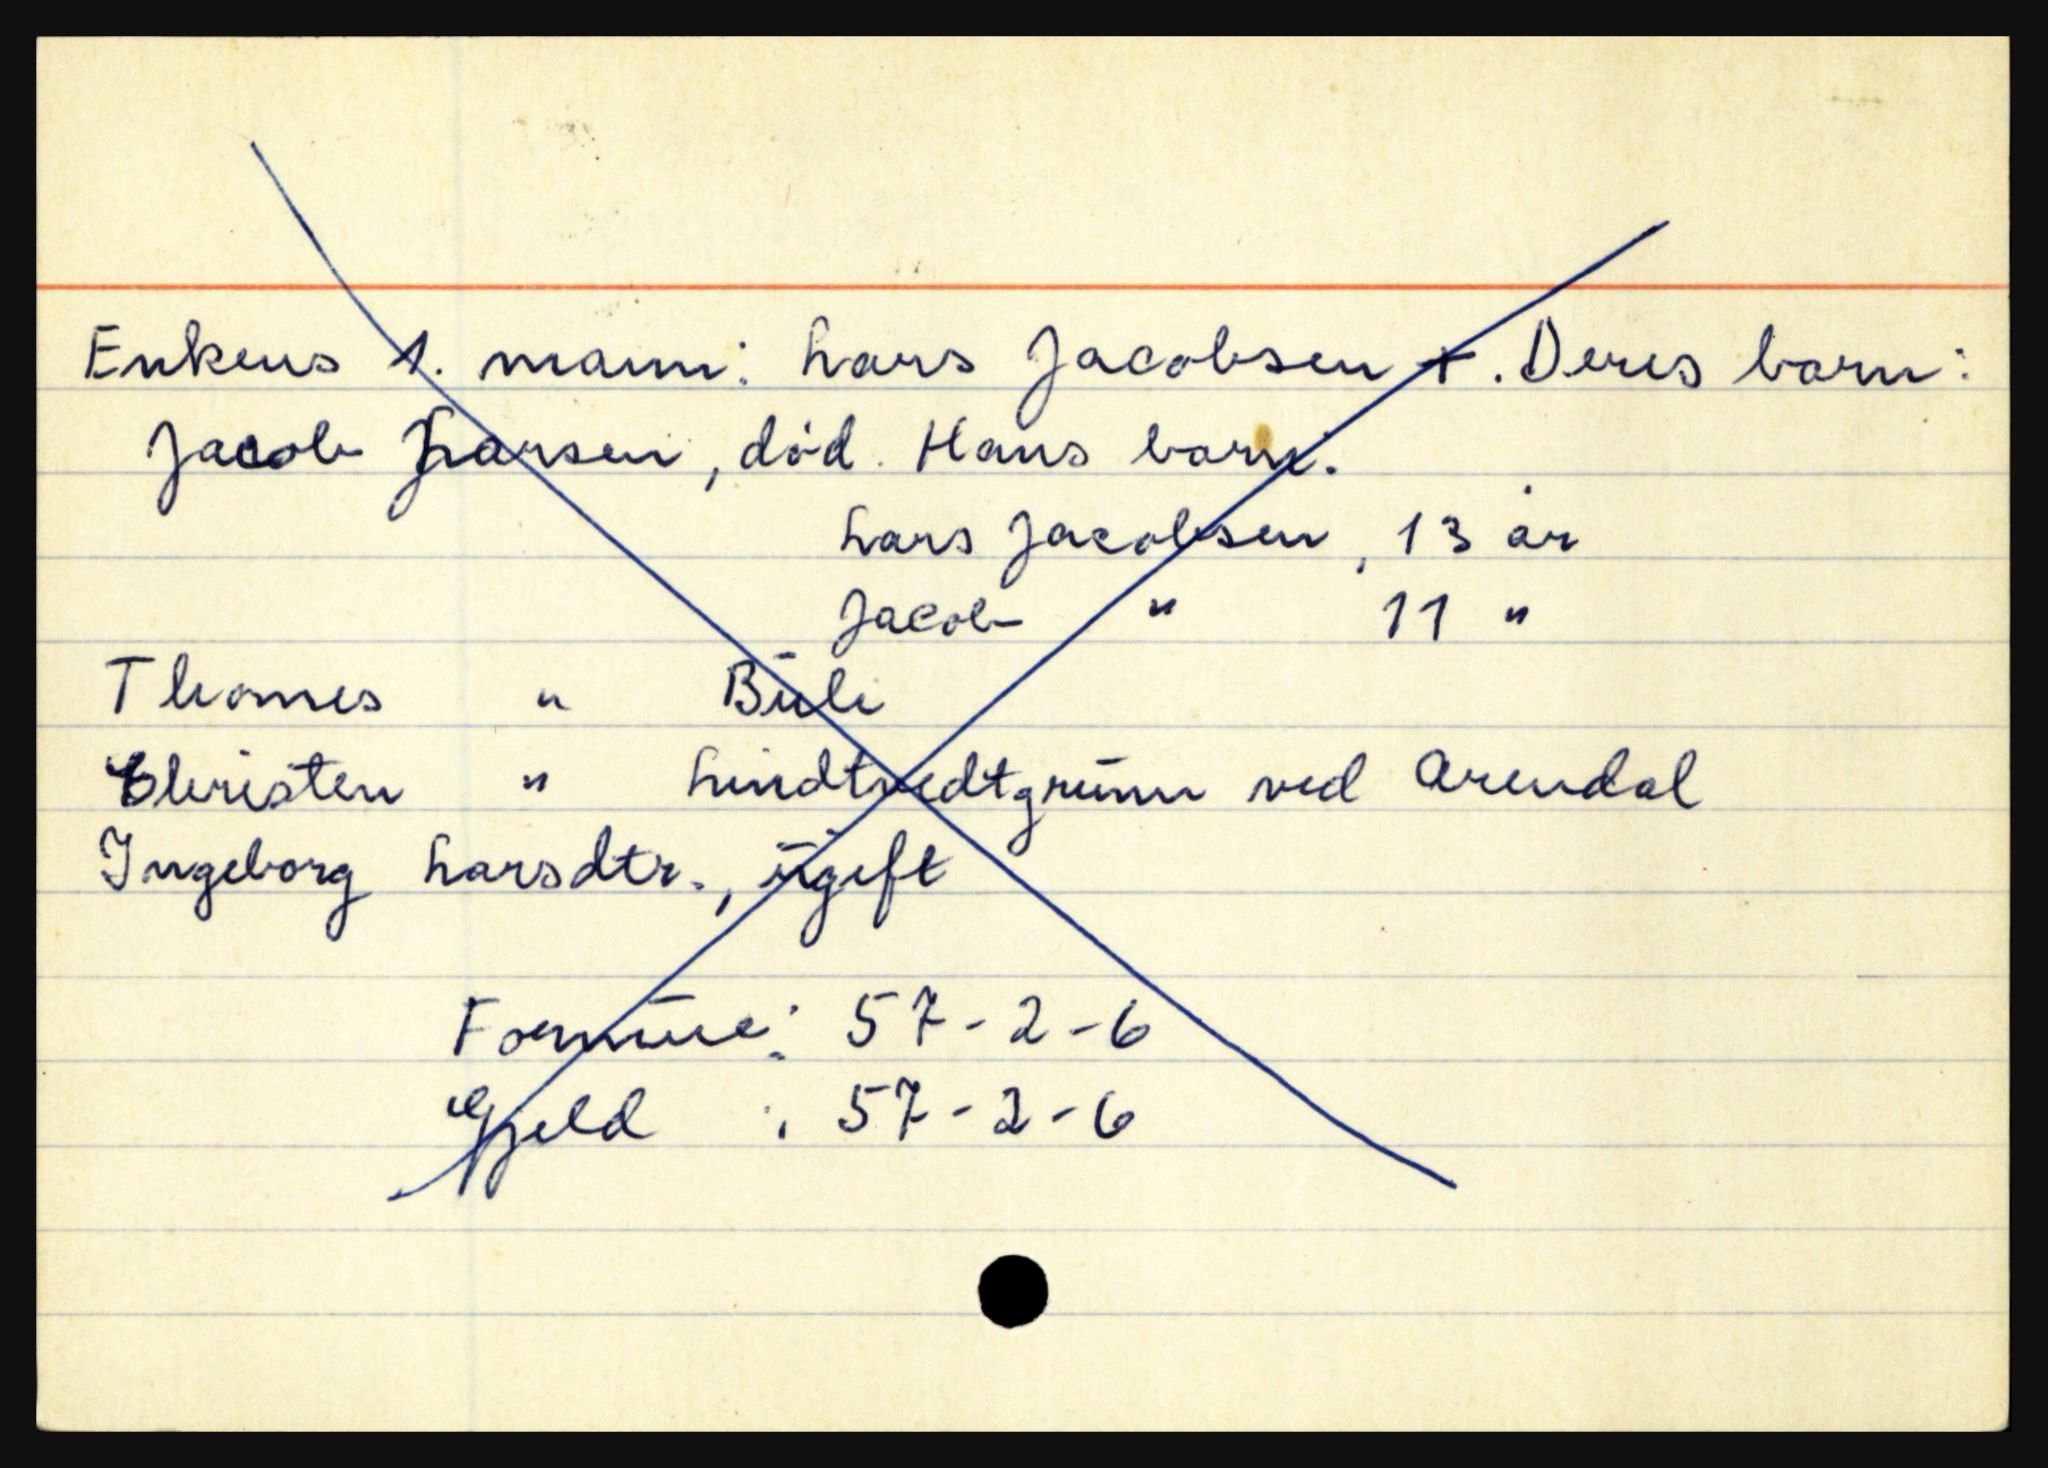 Enkens 1. mann: Lars Jacobsen +. Deres barn:
Jacob Larsen, død. Hans barn.
Lars Jacobsen, 13 år
Jacob " 11 "
Thomes " Buli
Christen " Lindtvedtgrunn ved Arendal
Ingeborg Larsdtr., ugift
Formue: 57-2-6
Gjeld : 57-2-6